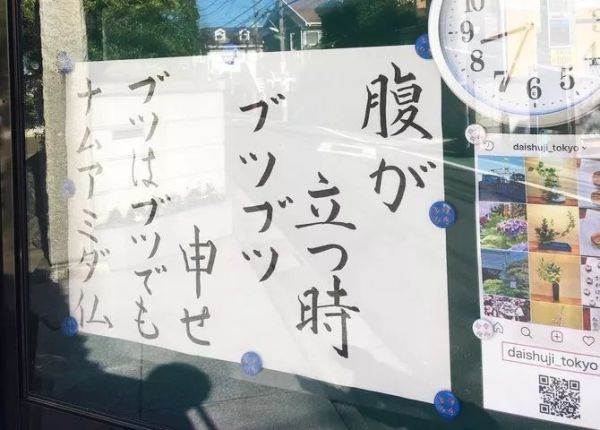 腹が
立つ時
ブツブツ
申せ
ブツはブツでも
ナムアミダ仏
10
9
8
7
6
5
daishuji_tokyo
daishuji_tokyo